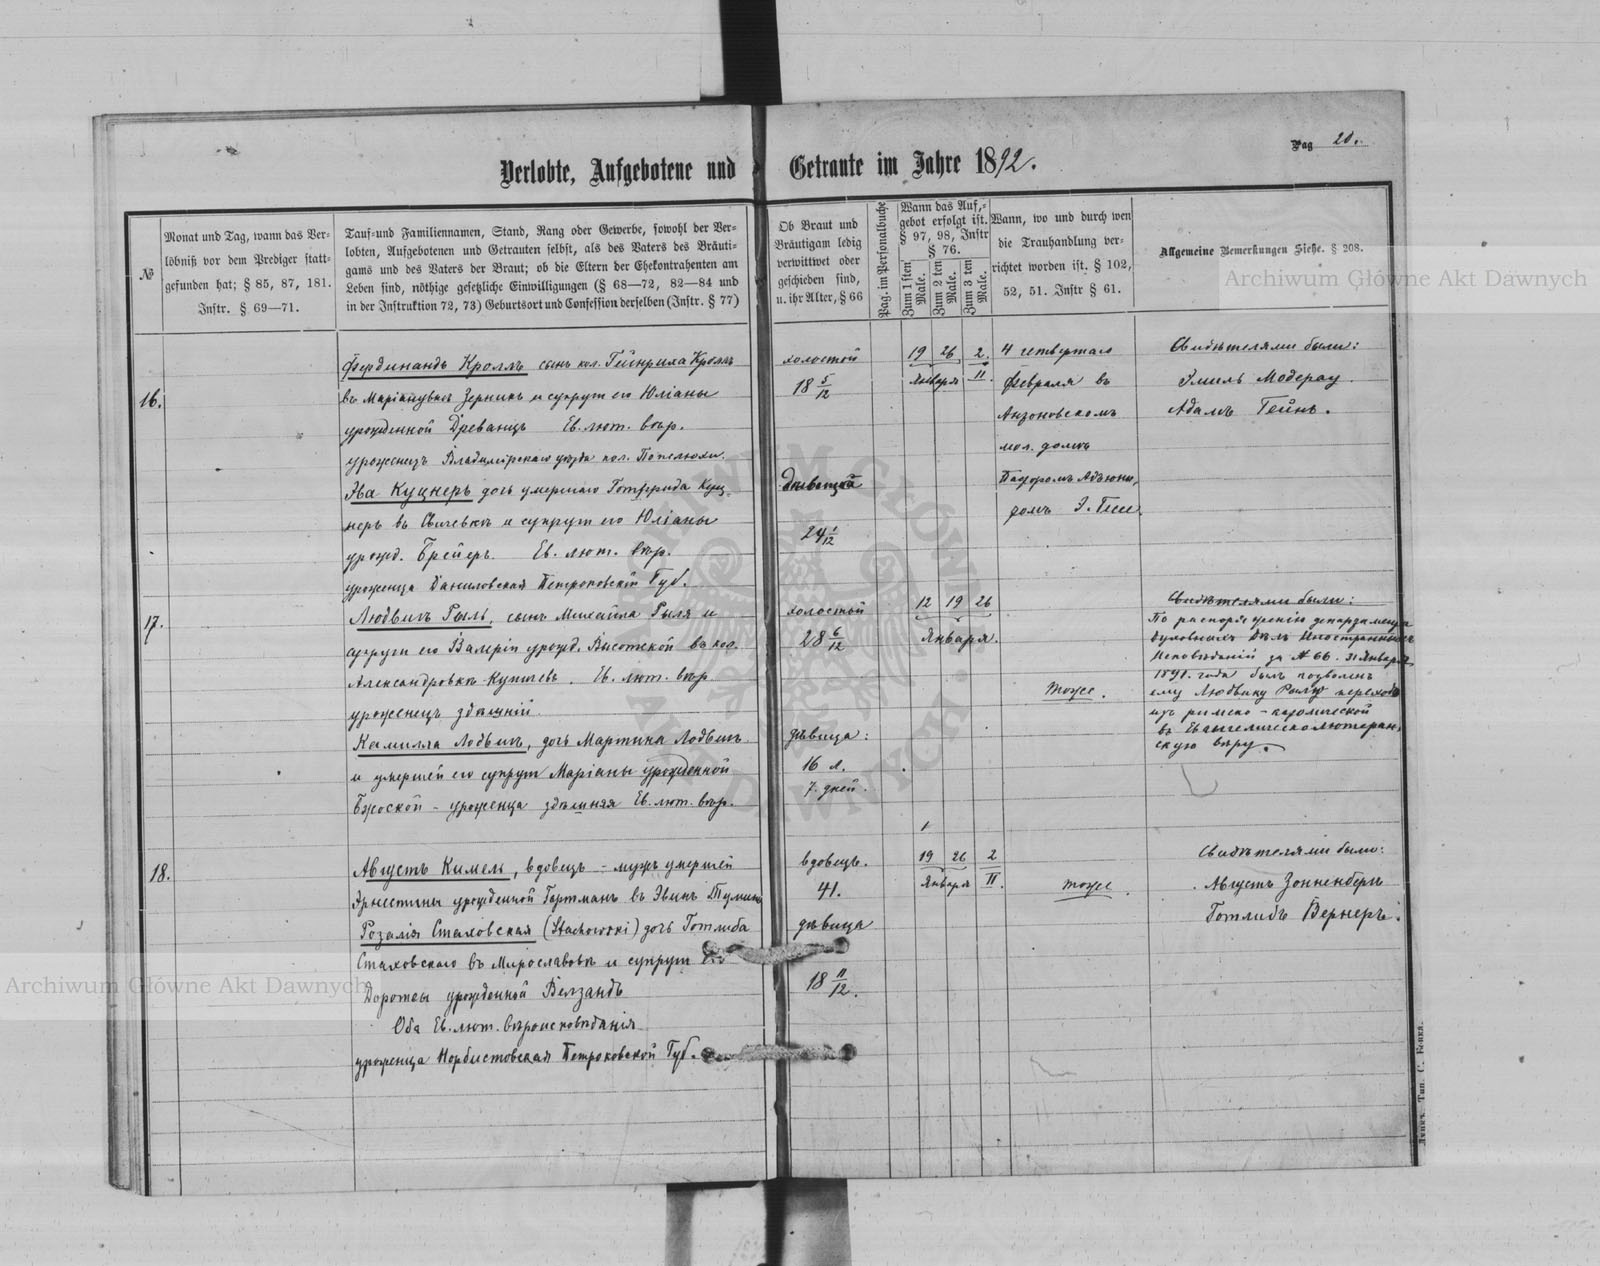 Pag 20.
Verlobte, Aufgebotene und Getraute im Jahre 1892.
№
Monat und Tag, wann das Ver-
löbniß vor dem Prediger statt-
gefunden hat; § 85, 87, 181.
Instr. § 69—71.
Tauf- und Familiennamen, Stand, Rang oder Gewerbe, sowohl der Ver-
lobten, Aufgebotenen und Getrauten selbst, als des Vaters des Bräuti-
gams und des Vaters der Braut; ob die Eltern der Ehekontrahenten am
Leben sind, nöthige gesetzliche Einwilligungen (§ 68—72, 82—84 und
in der Instruktion 72, 73) Geburtsort und Confession derselben (Instr. § 77)
Ob Braut und
Bräutigam ledig
verwittwet oder
geschieden sind,
u. ihr Alter, § 66
Pag. im Personalbuche
Wann das Auf-
gebot erfolgt ist.
§ 97, 98, Instr
§ 76.
Zum 1sten Male.
Zum 2ten Male.
Zum 3ten Male.
Wann, wo und durch wen
die Trauhandlung ver-
richtet worden ist. § 102,
52, 51. Instr § 61.
Allgemeine Bemerkungen Siehe. § 208.
16.
Фердинандъ Кроллъ сынъ кол. Гейнриха Кролль
въ Маріануwкѣ Зерникъ и супруг его Юліаны
урожденной Древанцъ Ев. лют. вѣр.
уроженецъ Владимірскаго уѣзда кол. Попелюхи.
Эва Куцнеръ дочь умершаго Готфрида Куц-
неръ въ Свичевкѣ и супруг его Юліаны
урожд. Брейеръ. Ев. лют. вѣр.
уроженца Даниловская Петроковскій Губ.
холостой
18 5/12
дѣвица
24 1/12
19 26 2.
Января II.
4 четвертаго
Февраля въ
Анзоновскомъ
мол. домѣ
Пасторомъ Адъюнк-
томъ Э. Гессе.
Свидѣтелями были:
Эмиль Модерау.
Адамъ Гейнъ.
17.
Людвигъ Рыль, сынъ Михаила Рыля и
супруги его Валеріи урожд. Высотской въ кол.
Александровкѣ Купичевъ. Ев. лют. вѣр.
уроженецъ здѣшній.
Камилла Лодвигъ, дочь Мартина Лодвигъ
и умершей его супруг Маріаны урожденной
Бжоской - уроженца здѣшняя Ев. лют. вѣр.
холостой
28 6/12
дѣвица:
16 л.
7. дней.
12 19 26
Января.
тоже.
Свидѣтелями были:
По распоряженію департамента
Духовныхъ Дѣлъ Иностранныхъ
Исповѣданій за № 66. 31 Января
1891. года былъ позволенъ
ему Людвигу Рылю переходъ
изъ римско-католической
въ Евангелическолютеран-
скую вѣру.
18.
Августъ Кимель, вдовецъ - мужъ умершей
Эрнестины урожденной Гартманъ въ Эвинъ
Розалія Стаховская (Stachowski) дочь Готлиба
Стаховскаго въ Мирославовкѣ и супруг его
Доротеы урожденной Велзандъ
Оба Ев. лют. вѣроисповѣданія
уроженца Норбистовская Петроковской Губ.
вдовецъ.
41.
дѣвица
18 11/12.
19 26 2
Января II.
тоже.
Свидѣтелями были:
Августъ Зонненбергъ
Готлибъ Вернеръ.
Archiwum Główne Akt Dawnych
Archiwum Główne Akt Dawnych
ARCHIWUM GŁÓWNE AKT DAWNYCH
Луцкъ. Тип. С. Бокка.